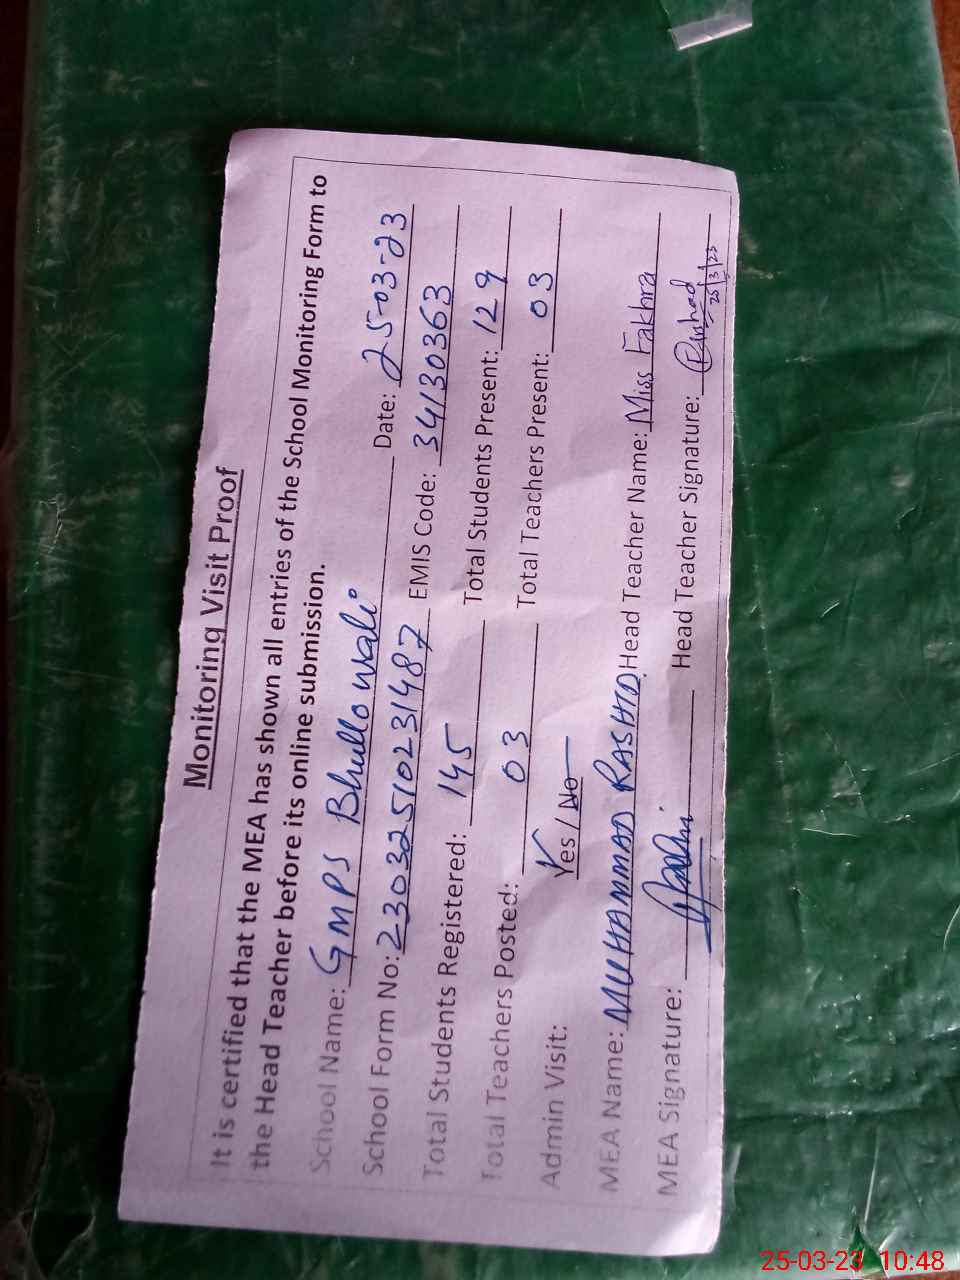 Monitoring Visit Proof
It is certified that the MEA has shown all entries of the School Monitoring Form to
the Head Teacher before its online submission.
School Name: GMPS Bhullowali Date: 25-03-23
School Form No: 23032510231487 EMIS Code: 34130363
Total Students Registered: 145 Total Students Present: 129
Total Teachers Posted: 03 Total Teachers Present: 03
Admin Visit: Yes / No
MEA Name: MUHAMMAD RASHID Head Teacher Name: Miss Fakhra
MEA Signature: Head Teacher Signature:
25/3/23
25-03-23 10:48